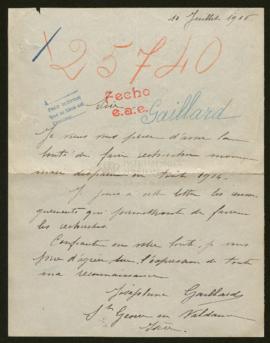 10 Juillet 1916
25740
Fecho
e.a.e.
Sire
Gaillard
Je viens vous prier d'avoir la
bonté de faire rechercher mon
mari disparu en Août 1914.
Je joins à cette lettre les
qui permettront de
les recherches.
Confiante en votre bonté, je vous
prie d'agréer Sire, l'expression de toute
ma reconnaissance
Joséphine Gaillard
St Geoire en Valdaine
Isère